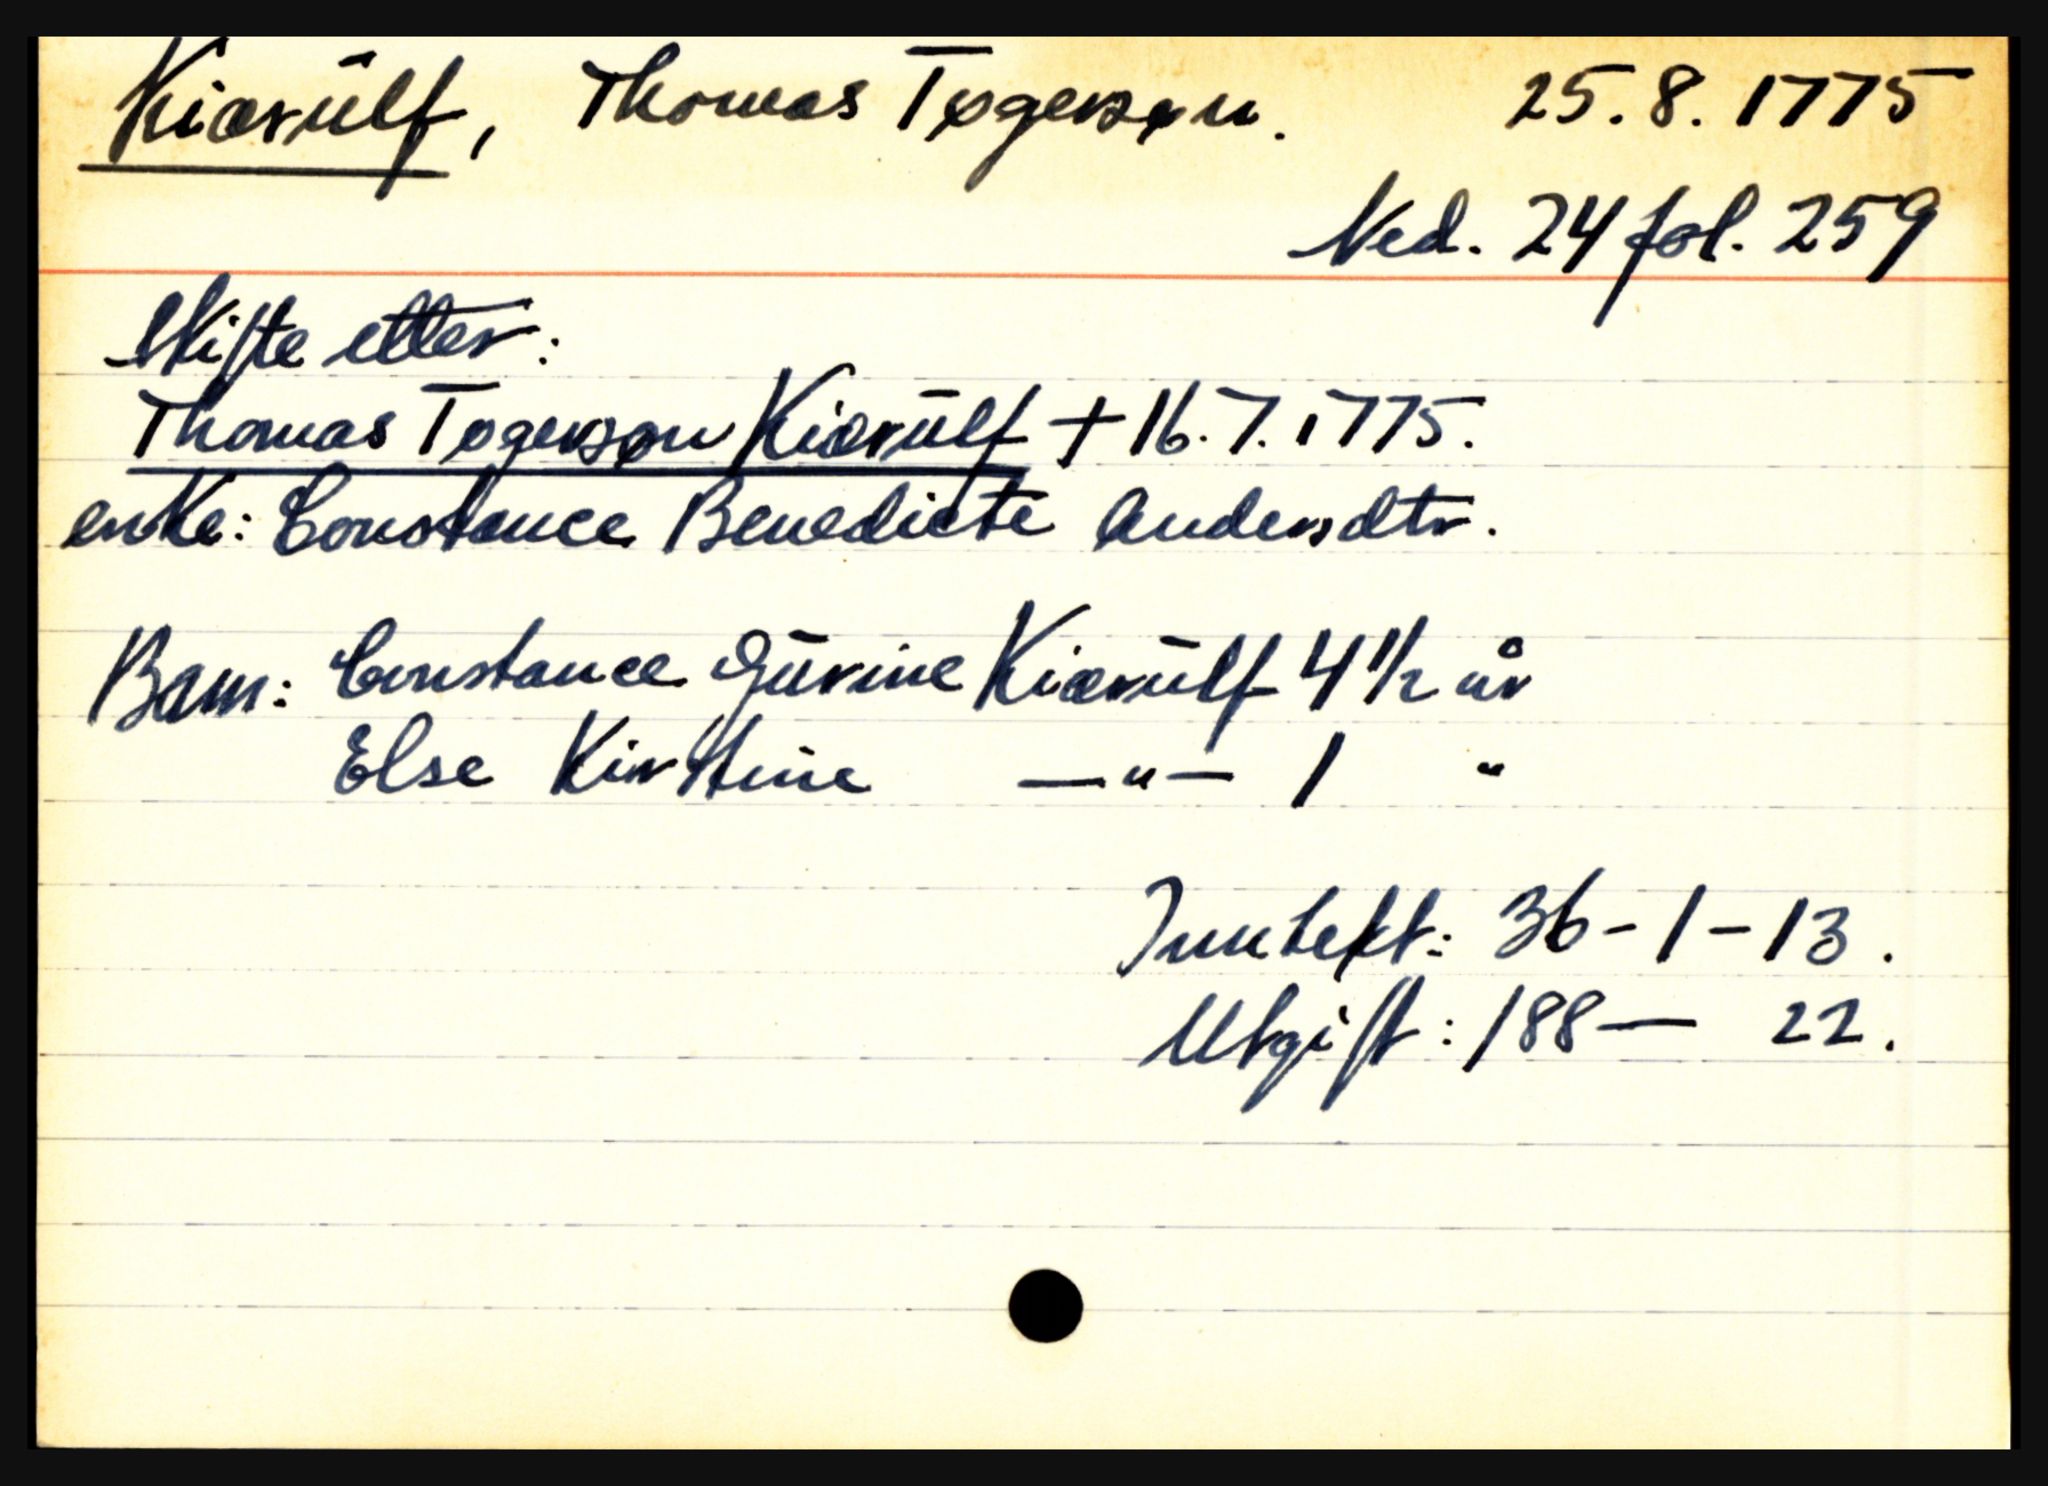 Kiærülf, Thomas Tøgersøn. 25.8.1775
Ned. 24 fol. 259
Skifte etter:
Thomas Tøgersøn Kiærülf + 16.7.1775.
enke: Constance Benedicte Andersdtr.
Barn: Constance Gürine Kiærülf 4 1/2 år
Else Kirstine —"— 1 "
Inntekt: 36-1-13.
Utgift: 188— 22.